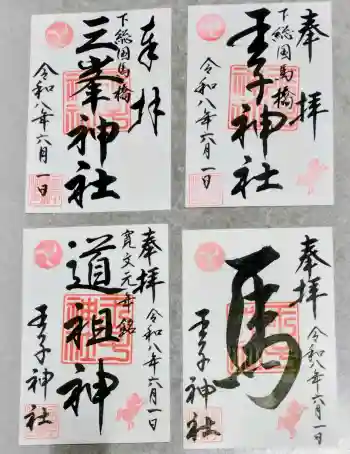 奉拝
下総国馬橋
三峯神社
令和八年六月一日
奉拝
下総国馬橋
王子神社
令和八年六月一日
奉拝
寛文元年銘
令和八年六月一日
道祖神
王子神社
奉拝
令和八年六月一日
馬
王子神社